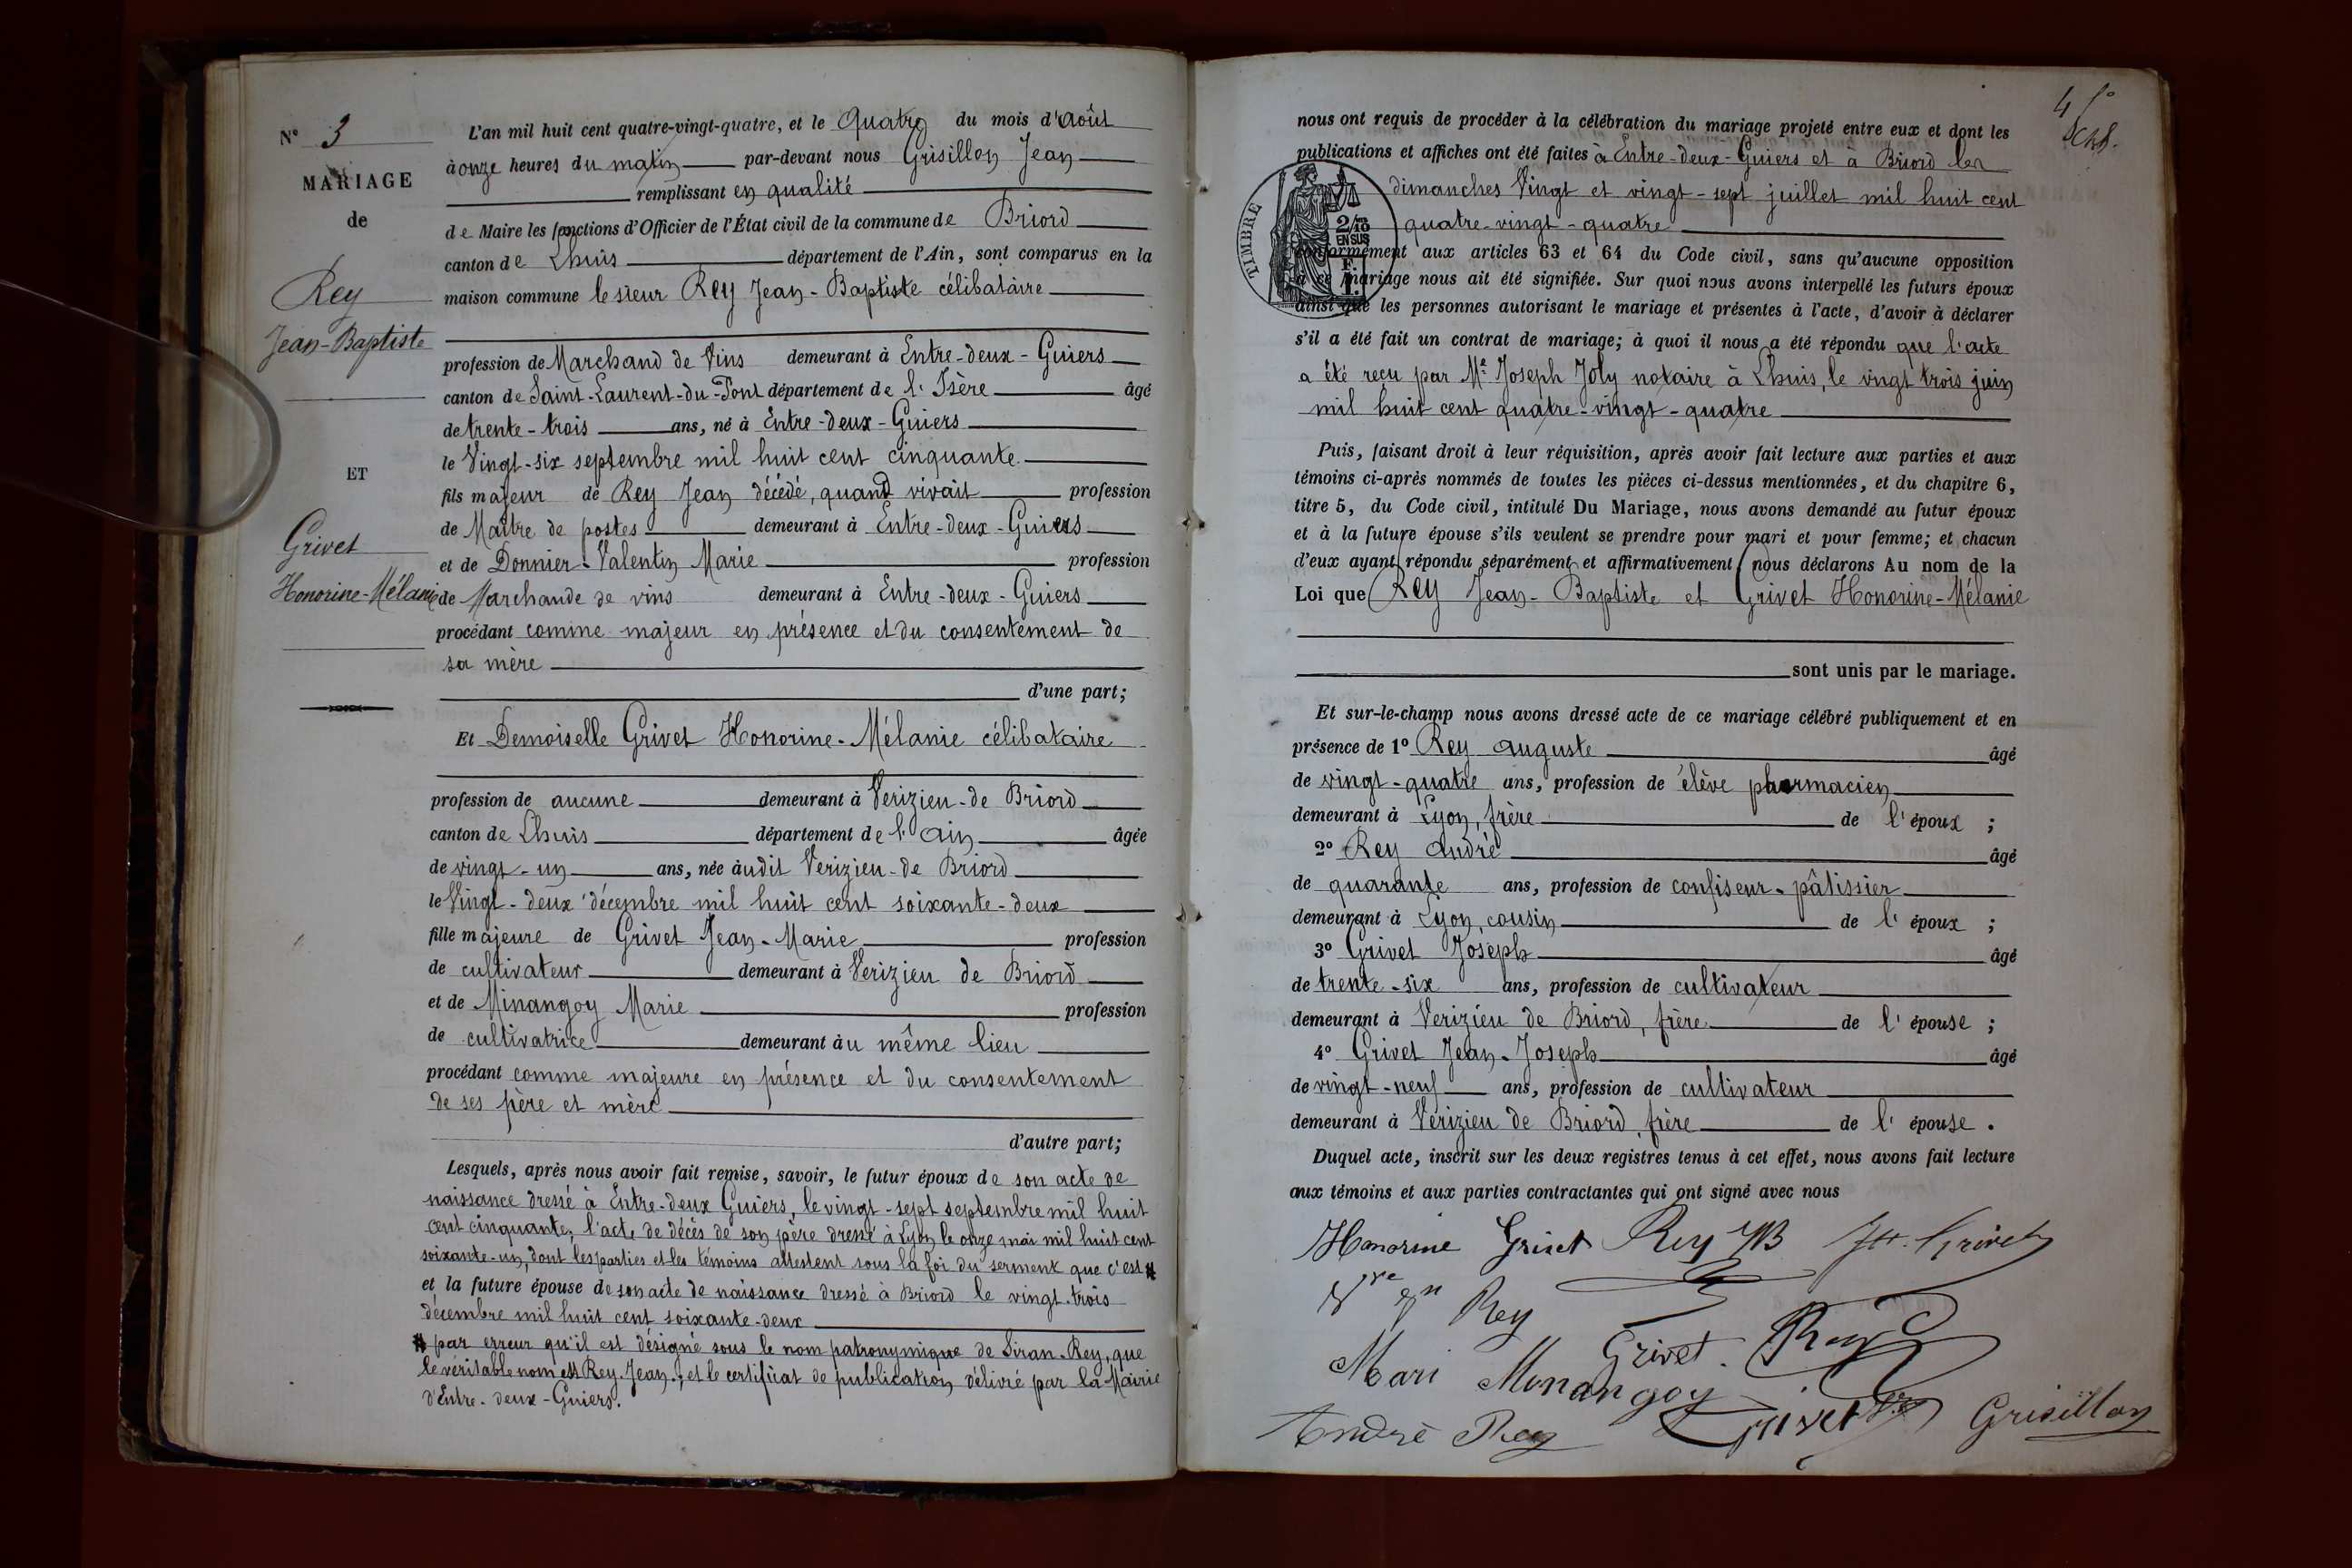 N° 3
MARIAGE
de
Rey
Jean-Baptiste
ET
Grivet
Honorine-Mélanie
L'an mil huit cent quatre-vingt-quatre, et le Quatre du mois d'Août
à onze heures du matin par-devant nous Grisillon Jean
remplissant en qualité
de Maire les fonctions d'Officier de l'État civil de la commune de Briord
canton de Lhuis département de l'Ain, sont comparus en la
maison commune le sieur Rey Jean-Baptiste célibataire
profession de Marchand de Vins demeurant à Entre-deux-Guiers
canton de Saint-Laurent-du-Pont département de l'Isère âgé
de trente-trois ans, né à Entre-deux-Guiers
le Vingt-six septembre mil huit cent cinquante
fils majeur de Rey Jean décédé, quand vivait profession
de Maître de postes demeurant à Entre-deux-Guiers
et de Donnier-Valentin Marie profession
de Marchande de vins demeurant à Entre-deux-Guiers
procédant comme majeur en présence et du consentement de
sa mère
d'une part;
Et Demoiselle Grivet Honorine-Mélanie célibataire
profession de aucune demeurant à Verizieu-de Briord
canton de Lhuis département de l'Ain âgée
de vingt-un ans, née àudit Verizieu-de Briord
le Vingt-deux décembre mil huit cent soixante-deux
fille majeure de Grivet Jean-Marie profession
de cultivateur demeurant à Verizieu de Briord
et de Minangoy Marie profession
de cultivatrice demeurant àu même lieu
procédant comme majeure en présence et du consentement
de ses père et mère
d'autre part;
Lesquels, après nous avoir fait remise, savoir, le futur époux de son acte de
naissance dressé à Entre-deux Guiers, le vingt-sept septembre mil huit
cent cinquante, l'acte de décès de son père dressé à Lyon le onze mai mil huit cent
soixante-un, dont les parties et les témoins attestent sous la foi du serment que c'est #
et la future épouse de son acte de naissance dressé à Briord le vingt-trois
décembre mil huit cent soixante-deux
# par erreur qu'il est désigné sous le nom patronymique de Siran-Rey, que
le véritable nom est Rey Jean; et le certificat de publication délivré par la Mairie
d'Entre-deux-Guiers.
nous ont requis de procéder à la célébration du mariage projeté entre eux et dont les
publications et affiches ont été faites à Entre-deux-Guiers et à Briord les
dimanches Vingt et vingt-sept juillet mil huit cent
quatre-vingt-quatre
TIMBRE
2/10
EN SUS
conformément aux articles 63 et 64 du Code civil, sans qu'aucune opposition
à ce mariage nous ait été signifiée. Sur quoi nous avons interpellé les futurs époux
ainsi que les personnes autorisant le mariage et présentes à l'acte, d'avoir à déclarer
s'il a été fait un contrat de mariage; à quoi il nous a été répondu que l'acte
a été reçu par Me Joseph Joly notaire à Lhuis, le vingt trois juin
mil huit cent quatre-vingt-quatre
Puis, faisant droit à leur réquisition, après avoir fait lecture aux parties et aux
témoins ci-après nommés de toutes les pièces ci-dessus mentionnées, et du chapitre 6,
titre 5, du Code civil, intitulé Du Mariage, nous avons demandé au futur époux
et à la future épouse s'ils veulent se prendre pour mari et pour femme; et chacun
d'eux ayant répondu séparément et affirmativement nous déclarons Au nom de la
Loi que Rey Jean-Baptiste et Grivet Honorine-Mélanie
sont unis par le mariage.
Et sur-le-champ nous avons dressé acte de ce mariage célébré publiquement et en
présence de 1° Rey Auguste âgé
de vingt-quatre ans, profession de élève pharmacien
demeurant à Lyon, frère de l'époux ;
2° Rey André âgé
de quarante ans, profession de confiseur-pâtissier
demeurant à Lyon, cousin de l'époux ;
3° Grivet Joseph âgé
de trente-six ans, profession de cultivateur
demeurant à Verizieu de Briord, frère de l'épouse ;
4° Grivet Jean-Joseph âgé
de vingt-neuf ans, profession de cultivateur
demeurant à Verizieu de Briord, frère de l'épouse.
Duquel acte, inscrit sur les deux registres tenus à cet effet, nous avons fait lecture
aux témoins et aux parties contractantes qui ont signé avec nous
Honorine Grivet Rey JB Grivet
Rey
Grivet Rey
Mari Menangoy
André Rey Grivet Grisillon